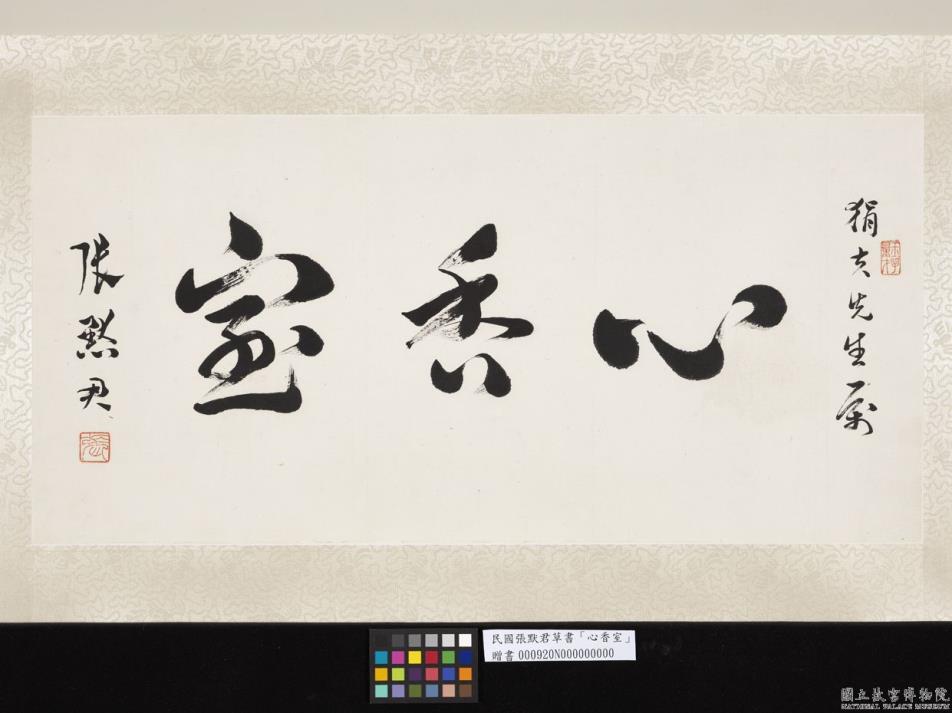 狷夫先生屬
心香室
張默君
民國張默君草書「心香室」
贈書000920N000000000
國立故宮博物院
NATIONAL PALACE MUSEUM